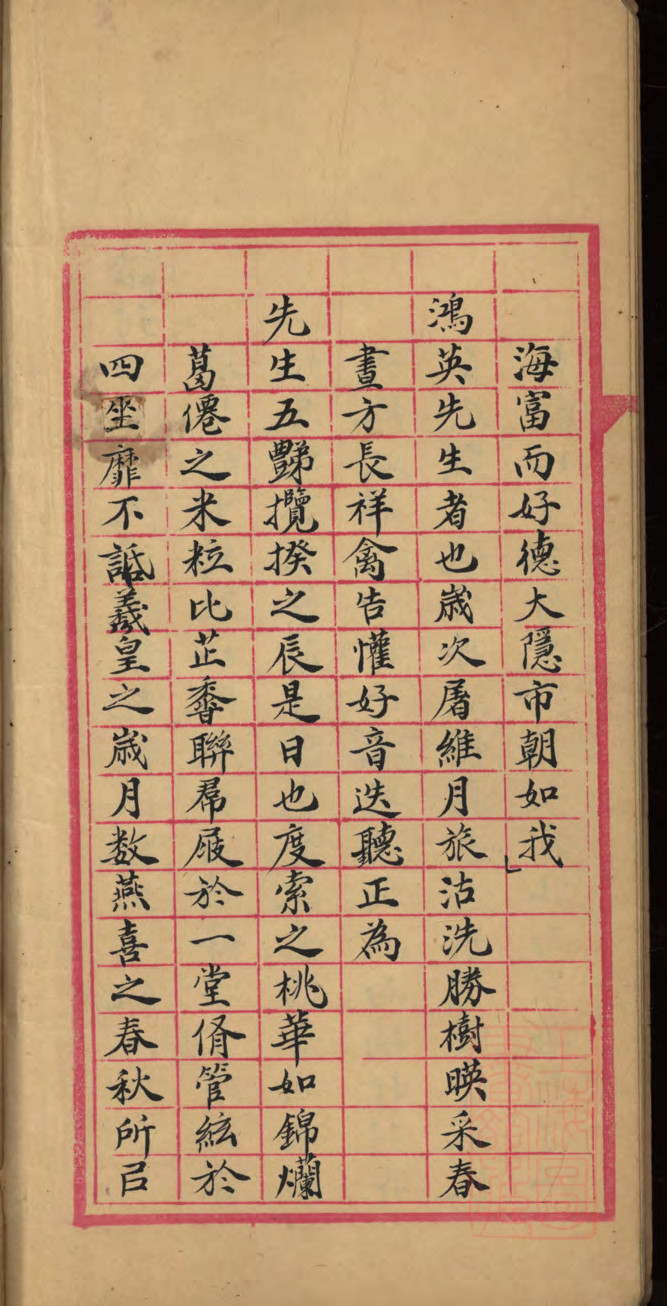 海富而好德大隱市朝如我
鴻英先生者也歲次屠維月旅沽洗勝樹暎采春
晝方長祥禽告懽好音迭聽正為
先生五豑攬揆之辰是日也度索之桃華如錦爛
葛僊之米粒比芷香聯帬屐於一堂脩管絃於
四坐靡不䛡羲皇之歲月数燕喜之春秋所㠯